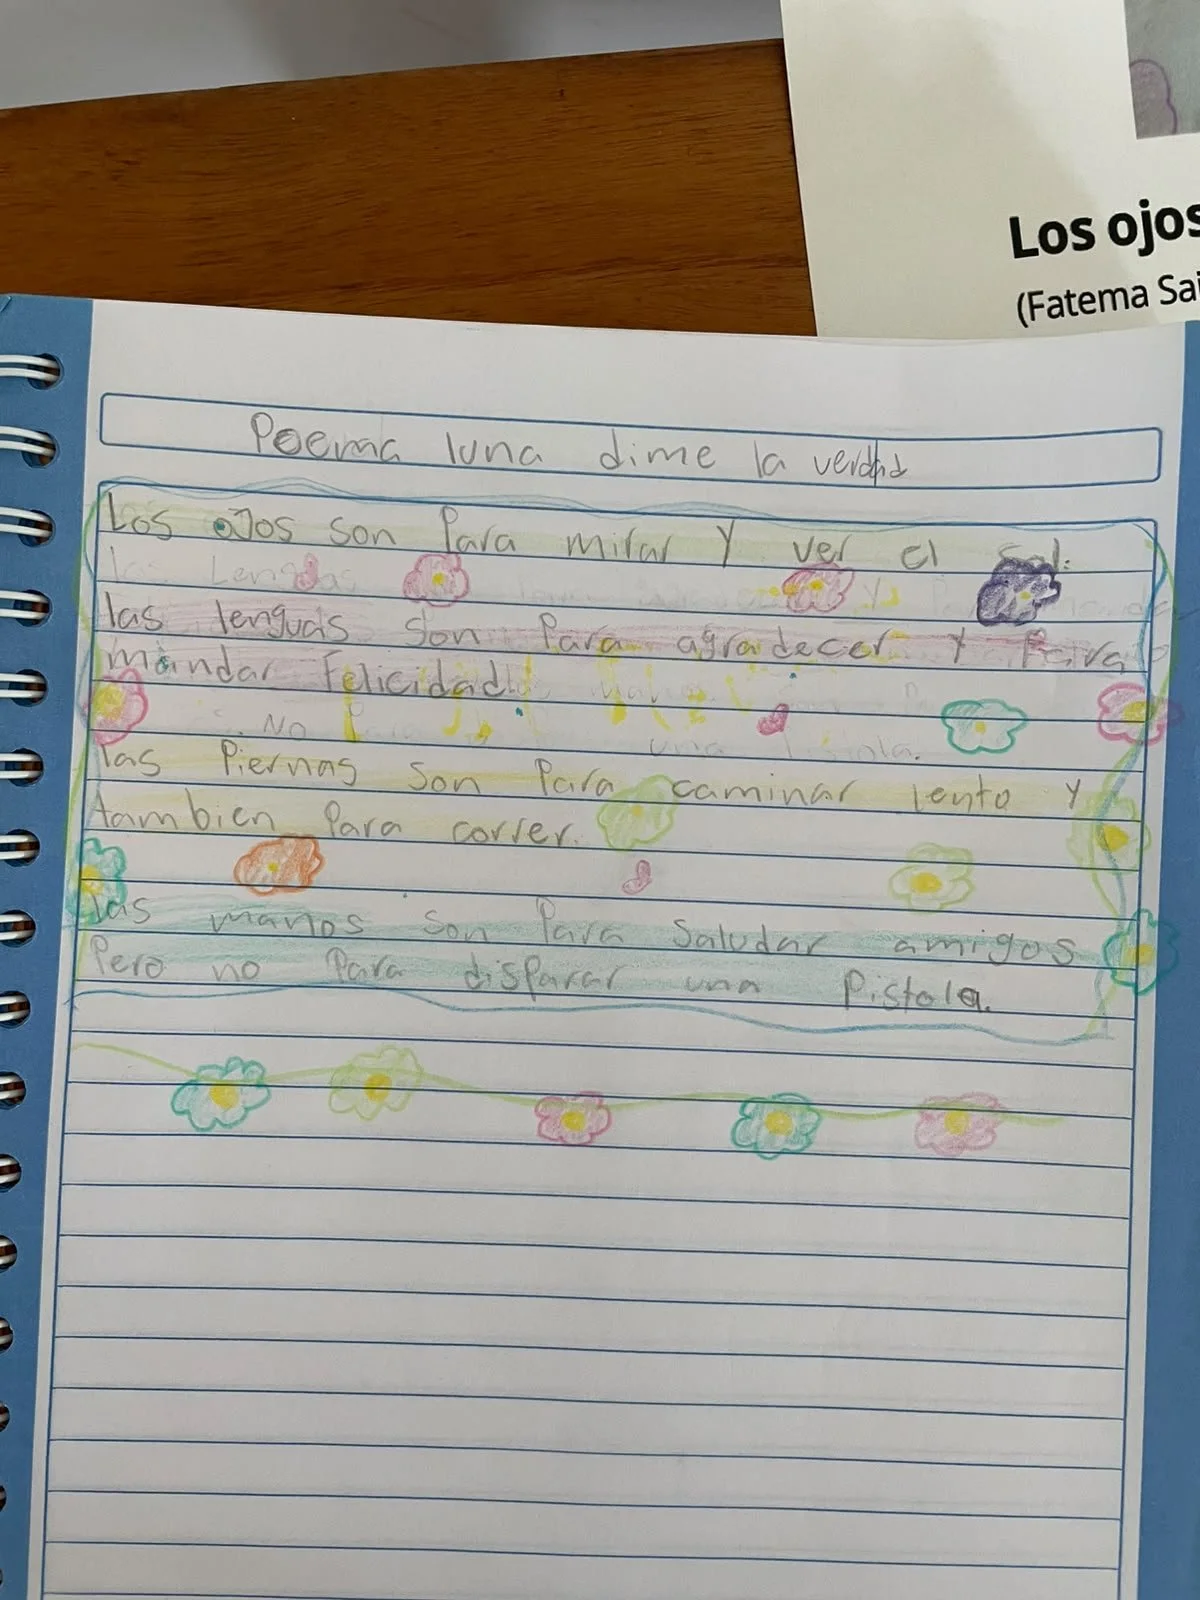 Los ojos
(Fatema Sai
Poema luna dime la verdad
Los ojos son Para mirar Y ver el Sol.
las Lenguas Y
las lenguas son Para agradecer Y Para
mandar Felicidad
No una
las Piernas son Para caminar lento Y
tambien Para correr.
las manos son Para Saludar amigos
Pero no Para disparar una Pistola.